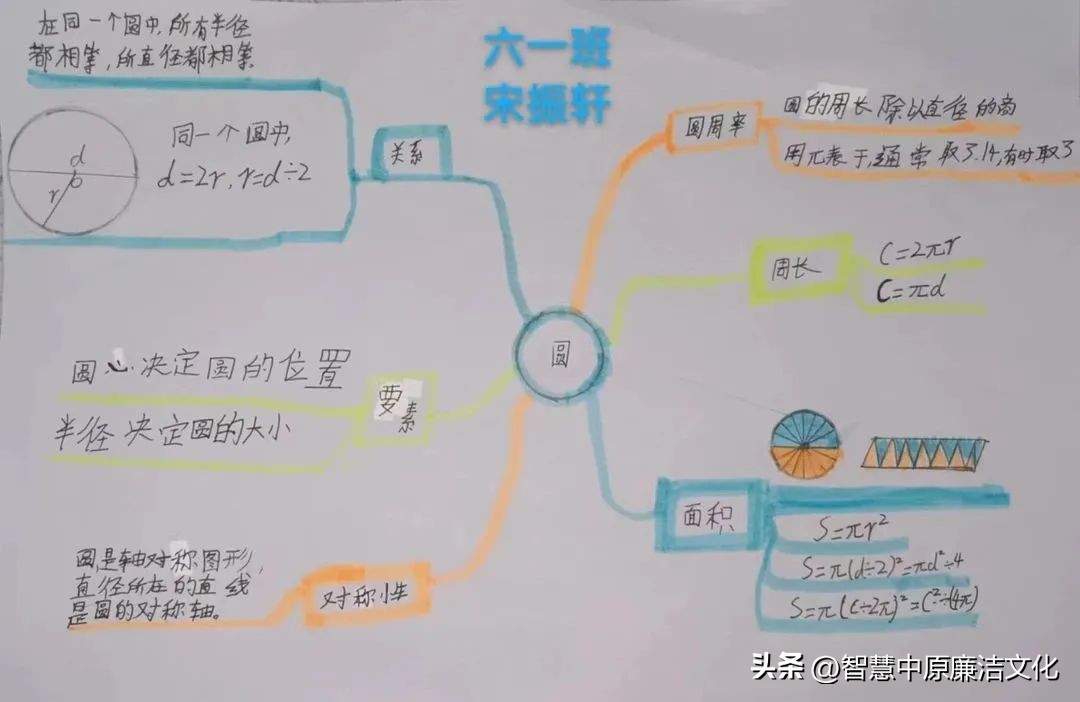 六一班
宋振轩
在同一个圆中,所有半径
都相等,所直径都相等
同一个圆中,
d=2r,r=d÷2
d
o
r
关系
圆周率
圆的周长除以直径的商
用π表于,通常取3.14,有时取3
周长
C=2πr
C=πd
圆
圆心决定圆的位置
半径决定圆的大小
要素
面积
S=πr²
S=π(d÷2)²=πd²÷4
S=π(C÷2π)²=C²÷(4π)
圆是轴对称图形,
直径所在的直线
是圆的对称轴。
对称性
头条 @智慧中原廉洁文化